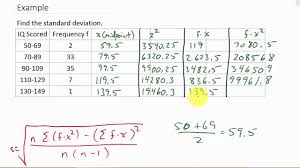 Example
Find the standard deviation.
IQ Scored Frequency f x(midpoint) x² f·x f·x²
50-69 2 59.5 3540.25 119 7080.5
70-89 33 79.5 6320.25 2623.5 208568
90-109 35 99.5 9900.25 3482.5 346509
110-129 7 119.5 14280.3 836.5 99961.8
130-149 1 139.5 19460.3 139.5
s = √ n Σ(f·x²) - (Σ f·x)² / n(n-1)
50+69 / 2 = 59.5